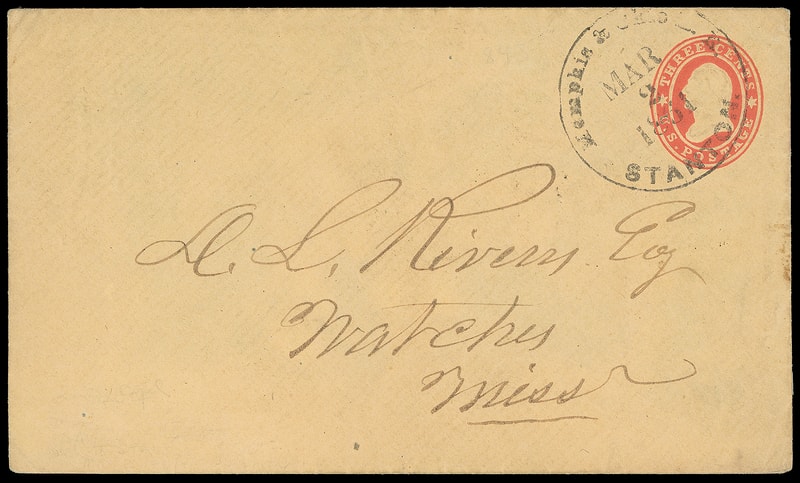 Memphis & Ohio
MAR
2
1861
STANTON.
THREE CENTS
U.S. POSTAGE
D. L. Rivers Esq
Natchez
Miss